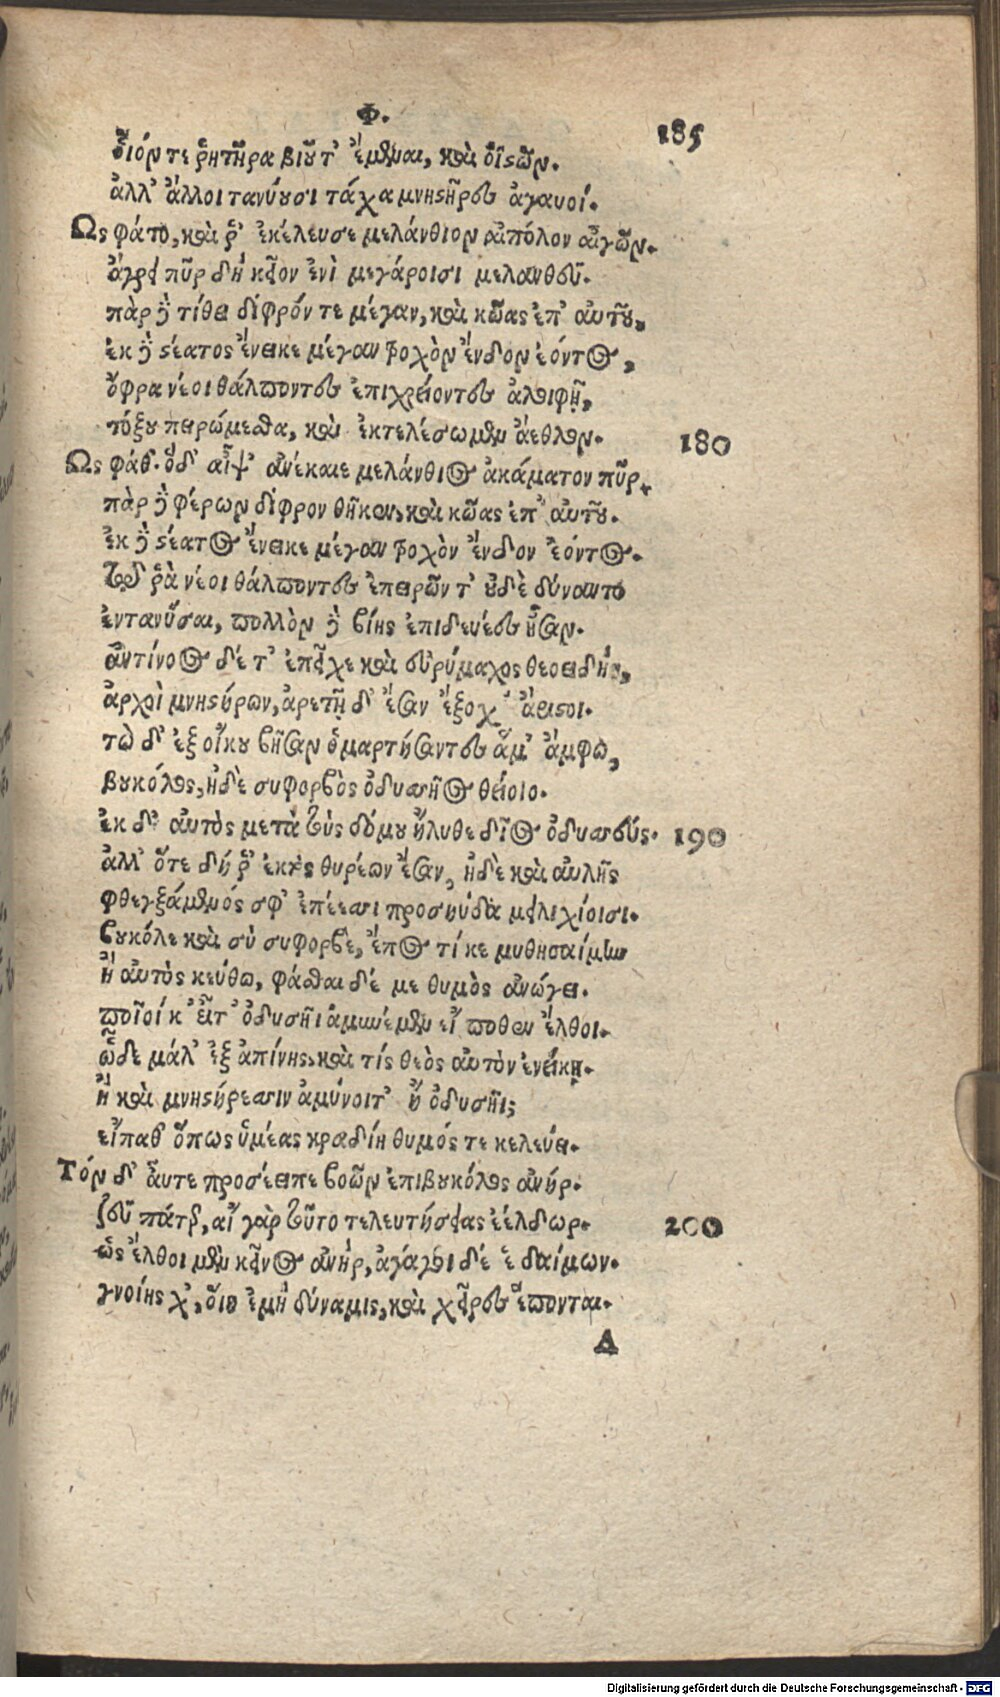 Φ.
185
οἷόν τε ῥητῆρα βιοῦ τ' ἔμεναι, καὶ ὀϊστῶν.
ἀλλ' ἄλλοι τανύουσι τάχα μνηστῆρες ἀγαυοί.
Ὣς φάτο, καὶ ῥ' ἐκέλευσε μελάνθιον αἰπόλον αἰγῶν.
ἄγρει πῦρ δὴ κεῖον ἐνὶ μεγάροισι μελανθεῦ.
πὰρ δὲ τίθει δίφρόν τε μέγαν, καὶ κῶας ἐπ' αὐτοῦ,
ἐκ δὲ στέατος ἔνεικε μέγαν τροχὸν ἔνδον ἐόντος,
ὄφρα νέοι θάλποντες ἐπιχρείοντες ἀλοιφῇ,
τόξου πειρώμεσθα, καὶ ἐκτελέσωμεν ἄεθλον.
180
Ὣς φάθ'. ὅδ' αἶψ' ἀνέκαιε μελάνθιος ἀκάματον πῦρ.
πὰρ δὲ φέρων δίφρον θῆκεν, καὶ κῶας ἐπ' αὐτοῦ.
ἐκ δὲ στέατος ἔνεικε μέγαν τροχὸν ἔνδον ἐόντος.
τῷ ῥὰ νέοι θάλποντες ἐπειρῶντ' οὐδὲ δύναντο
ἐντανῦσαι, πολλὸν δὲ βίης ἐπιδευέες ἦσαν.
ἀντίνοος δέ τ' ἐπεῖχε καὶ εὐρύμαχος θεοειδής,
ἀρχοὶ μνηστήρων, ἀρετῇ δ' ἔσαν ἔξοχ' ἄριστοι.
τὼ δ' ἐξ οἴκου βῆσαν ὁμαρτήσαντες ἅμ' ἄμφω,
βουκόλος, ἠδὲ συφορβὸς ὀδυσσῆος θείοιο.
ἐκ δ' αὐτὸς μετὰ τοὺς δόμου ἤλυθε δῖος ὀδυσσεύς.
190
ἀλλ' ὅτε δή ῥ' ἐκτὸς θυρέων ἔσαν, ἠδὲ καὶ αὐλῆς
φθεγξάμενός σφ' ἐπέεσσι προσηύδα μειλιχίοισι.
βουκόλε καὶ σὺ συφορβὲ, ἔπος τί κε μυθησαίμην
ἢ αὐτὸς κεύθω, φάσθαι δέ με θυμὸς ἀνώγει.
ποῖοί κ' εἶτ' ὀδυσῆϊ ἀμυνέμεν εἴ ποθεν ἔλθοι.
ὧδε μάλ' ἐξ ἀπίνης, καὶ τίς θεὸς αὐτὸν ἐνείκῃ.
ἢ καὶ μνηστήρεσσιν ἀμύνοιτ' ἢ ὀδυσῆϊ;
εἴπαθ' ὅπως ὑμέας κραδίη θυμός τε κελεύει.
Τὸν δ' αὖτε προσέειπε βοῶν ἐπιβουκόλος ἀνήρ.
ζεῦ πάτερ, αἲ γὰρ τοῦτο τελευτήσειας ἐέλδωρ.
200
ὡς ἔλθοι μὲν κεῖνος ἀνὴρ, ἀγάγοι δέ ἑ δαίμων.
γνοίης χ', οἵη ἐμὴ δύναμις, καὶ χεῖρες ἕπονται.
A
Digitalisierung gefördert durch die Deutsche Forschungsgemeinschaft - DFG